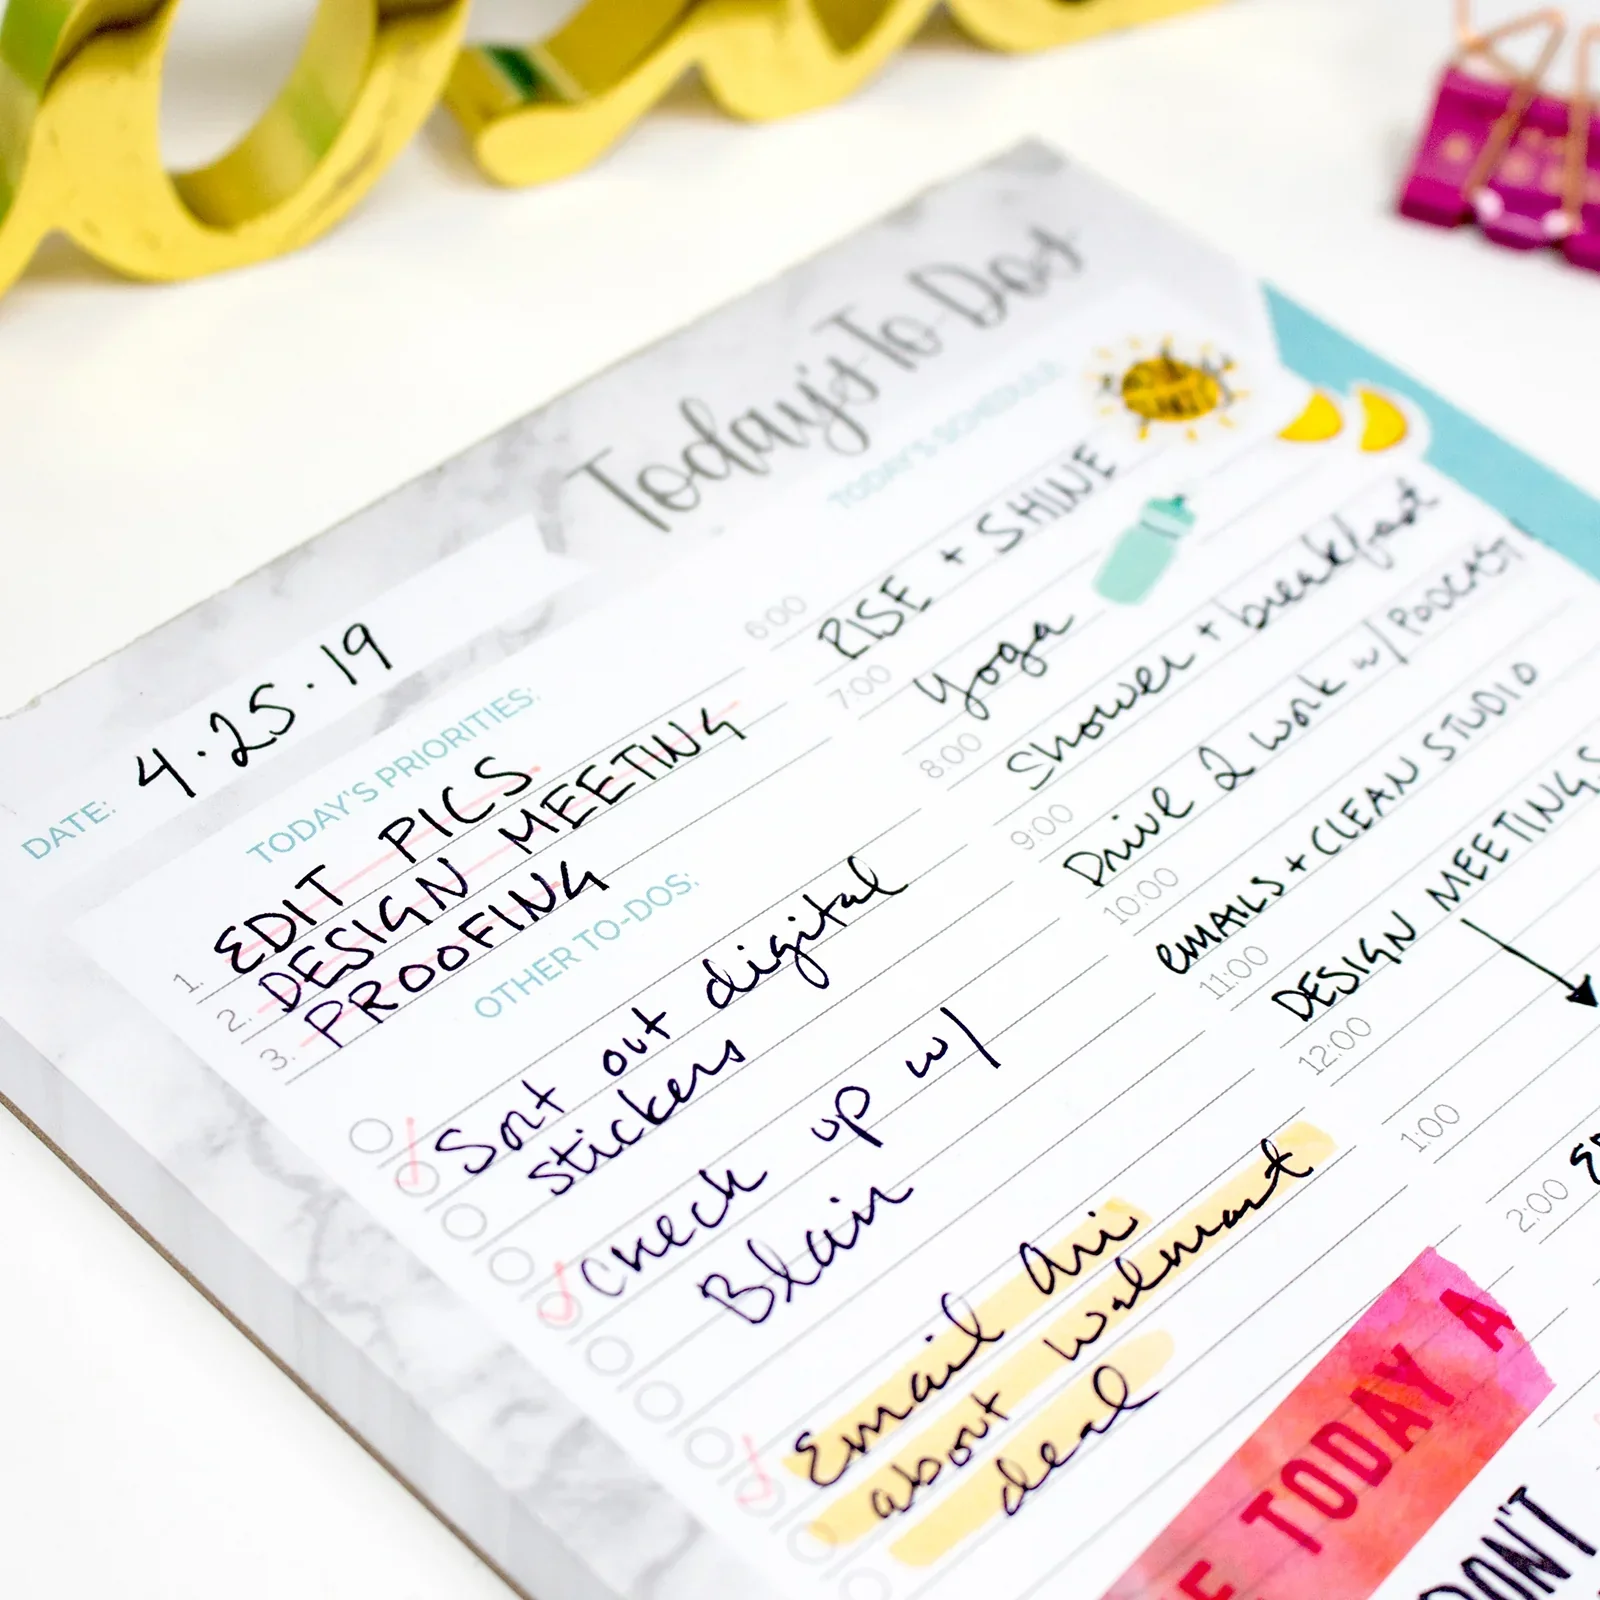 Today's To-Dos
DATE: 4.25.19
TODAY'S PRIORITIES:
1. EDIT PICS
2. DESIGN MEETING
3. PROOFING
OTHER TO-DOS:
Sort out digital
stickers
Check up w/
Blair
Email Ari
about walmart
deal
TODAY'S SCHEDULE
6:00 RISE + SHINE
7:00 Yoga
8:00 Shower + breakfast
9:00 Drive 2 work w/ PODCAST
10:00 EMAILS + CLEAN STUDIO
11:00 DESIGN MEETINGS
12:00
1:00
2:00
TODAY A
DON'T